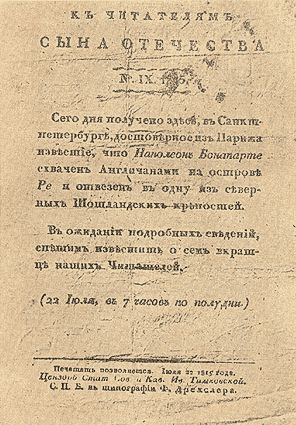 КЪ ЧИТАТЕЛЯМЪ
СЫНА ОТЕЧЕСТВА
N. IX.
Сего дня получено здѣсь, въ Санкт-
петербургѣ, достовѣрное изъ Парижа
извѣстіе, что Наполеонъ Бонапарте
схваченъ Англичанами на островѣ
Ре и отвезенъ въ одну изъ сѣвер-
ныхъ Шотландскихъ крѣпостей.
Въ ожиданіи подробныхъ свѣденій,
спѣшимъ извѣстить о семъ вкрат-
цѣ нашихъ Читателей.
(22 Іюля, въ 7 часовъ по полудни.)
Печатать позволяется. Іюля 22 1815 года.
Цензоръ Стат. Сов. и Кав. Ив. Тимковской.
С. П. Б. въ типографіи Ф. Дрехслера.